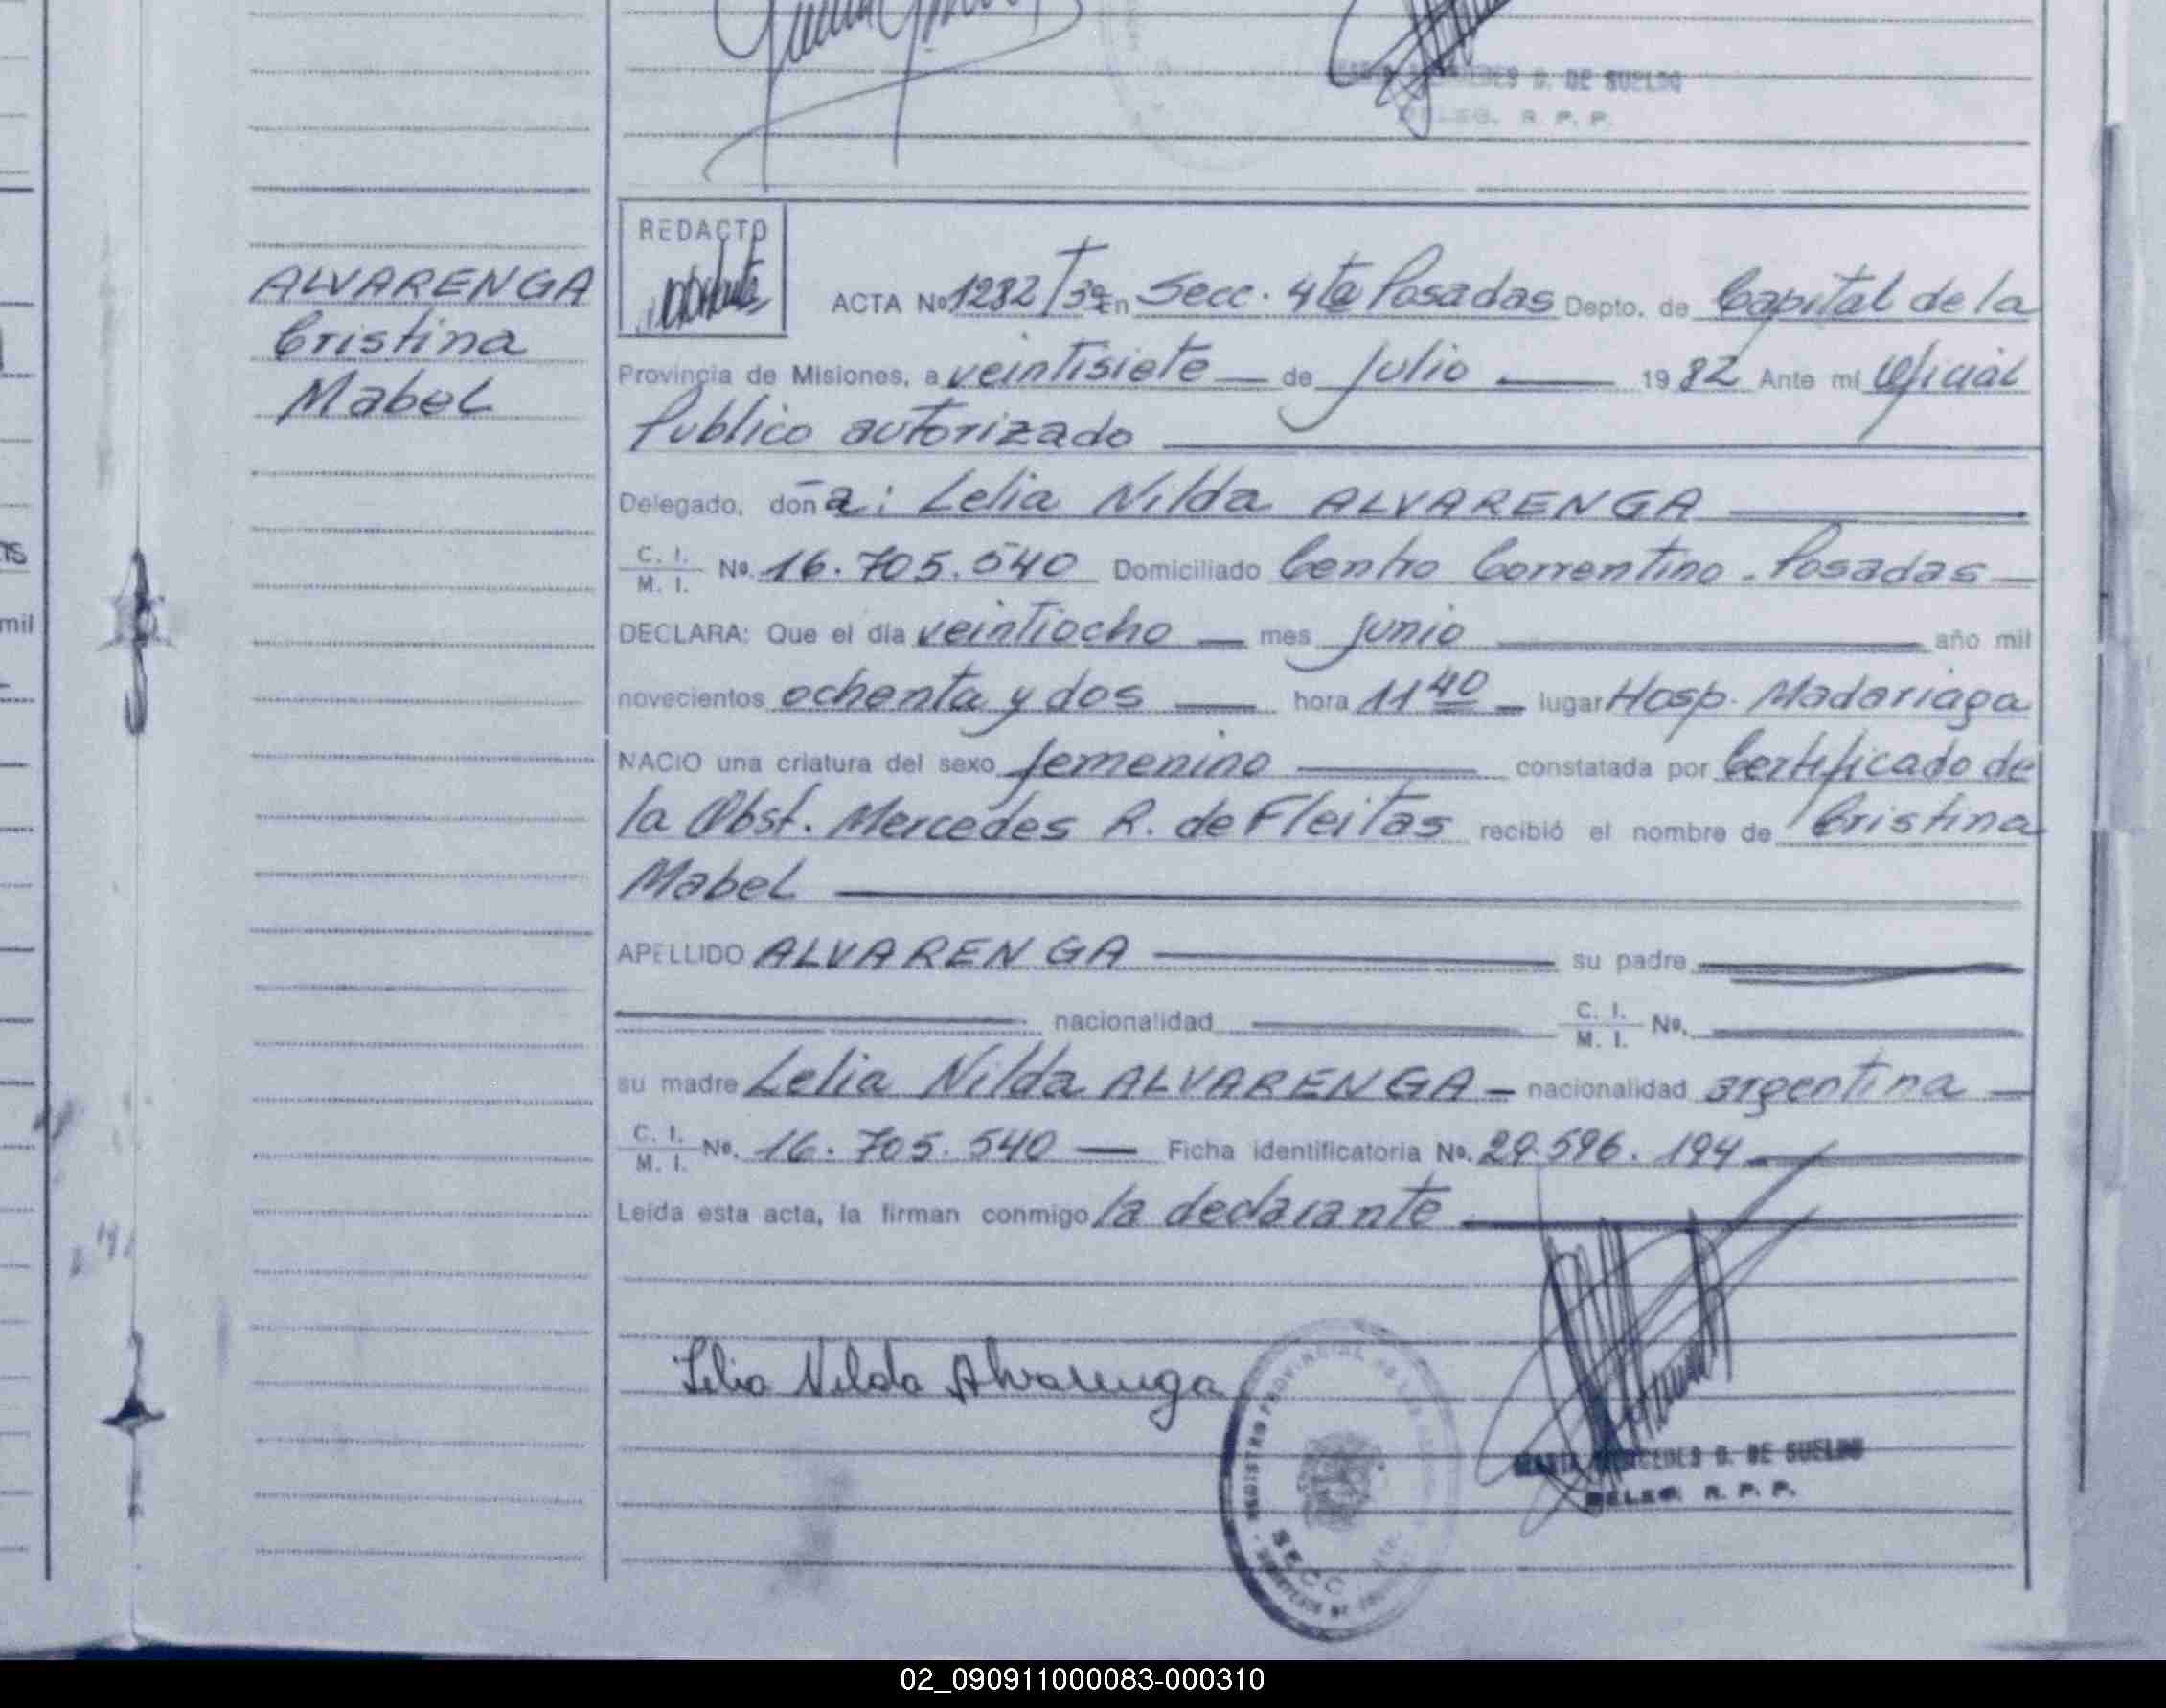 DE SUELDO
DELEG. R. P. P.
REDACTO
ALVARENGA
Cristina
Mabel
ACTA Nº 1282 Tº 3º En Secc. 4ta Posadas Depto. de Capital de la
Provincia de Misiones, a veintisiete de julio 1982 Ante mí Oficial
Publico autorizado
Delegado, doña: Lelia Nilda ALVARENGA
C. I. / M. I. Nº. 16.705.540 Domiciliado Centro Correntino - Posadas
DECLARA: Que el día veintiocho mes junio año mil
novecientos ochenta y dos hora 11 40 lugar Hosp. Madariaga
NACIO una criatura del sexo femenino constatada por Certificado de
la Obst. Mercedes R. de Fleitas recibió el nombre de Cristina
Mabel
APELLIDO ALVARENGA su padre
nacionalidad C. I. / M. I. Nº.
su madre Lelia Nilda ALVARENGA - nacionalidad argentina
C. I. / M. I. Nº. 16.705.540 Ficha identificatoria Nº. 29.596.194
Leída esta acta, la firman conmigo la declarante
Lelia Nilda Alvarenga
REGISTRO PROVINCIAL DE LAS
SECC
MERCEDES G. DE SUELDO
DELEG. R. P. P.
mil
02_090911000083-000310